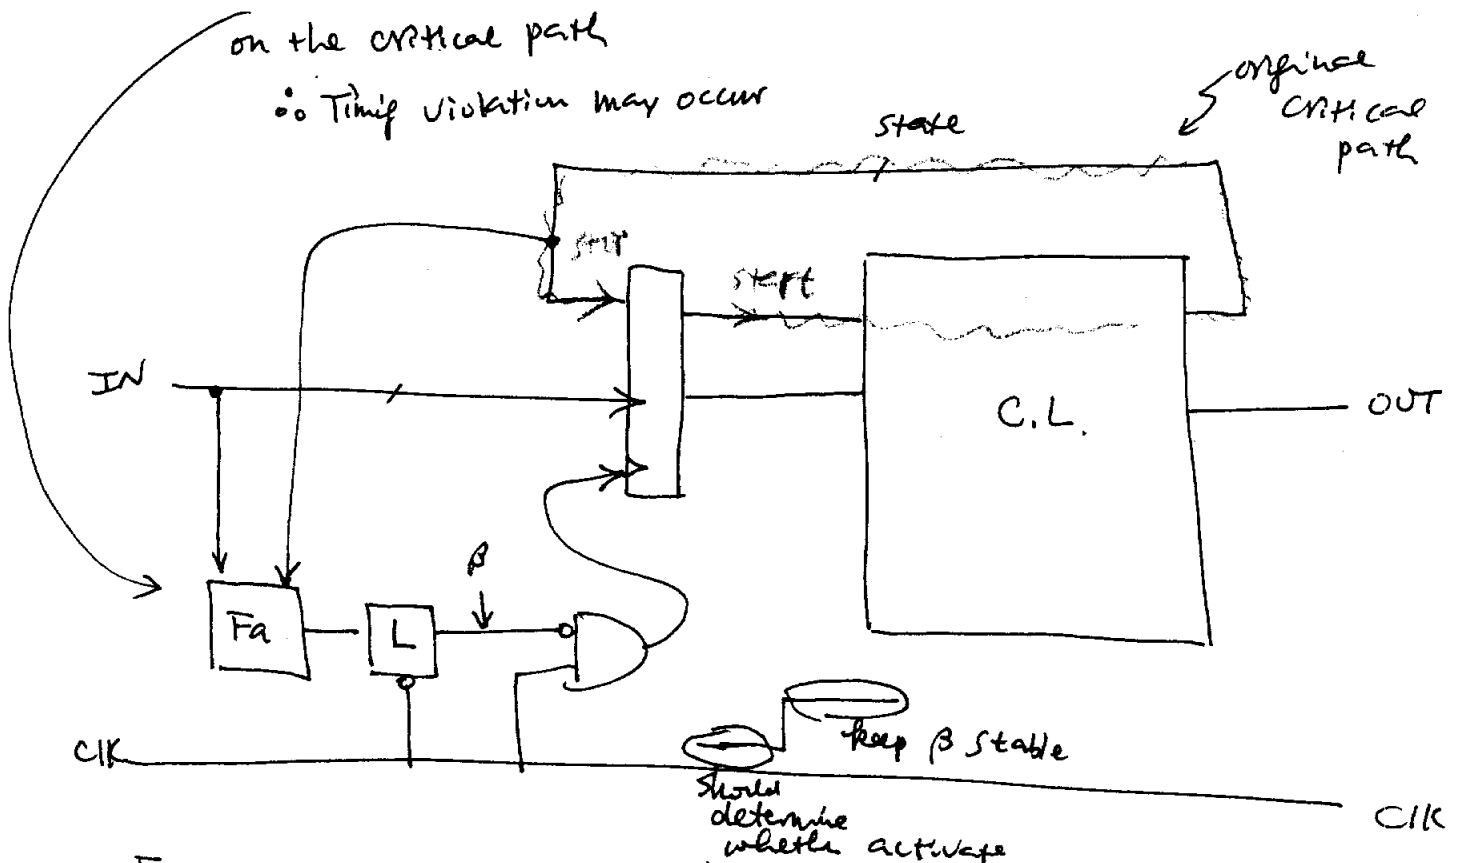 on the critical path
∴ Timing violation may occur
original
critical
path
state
IN
C.L.
OUT
β
Fa
L
keep β stable
Clk
Should
determine
whether activate
Clk